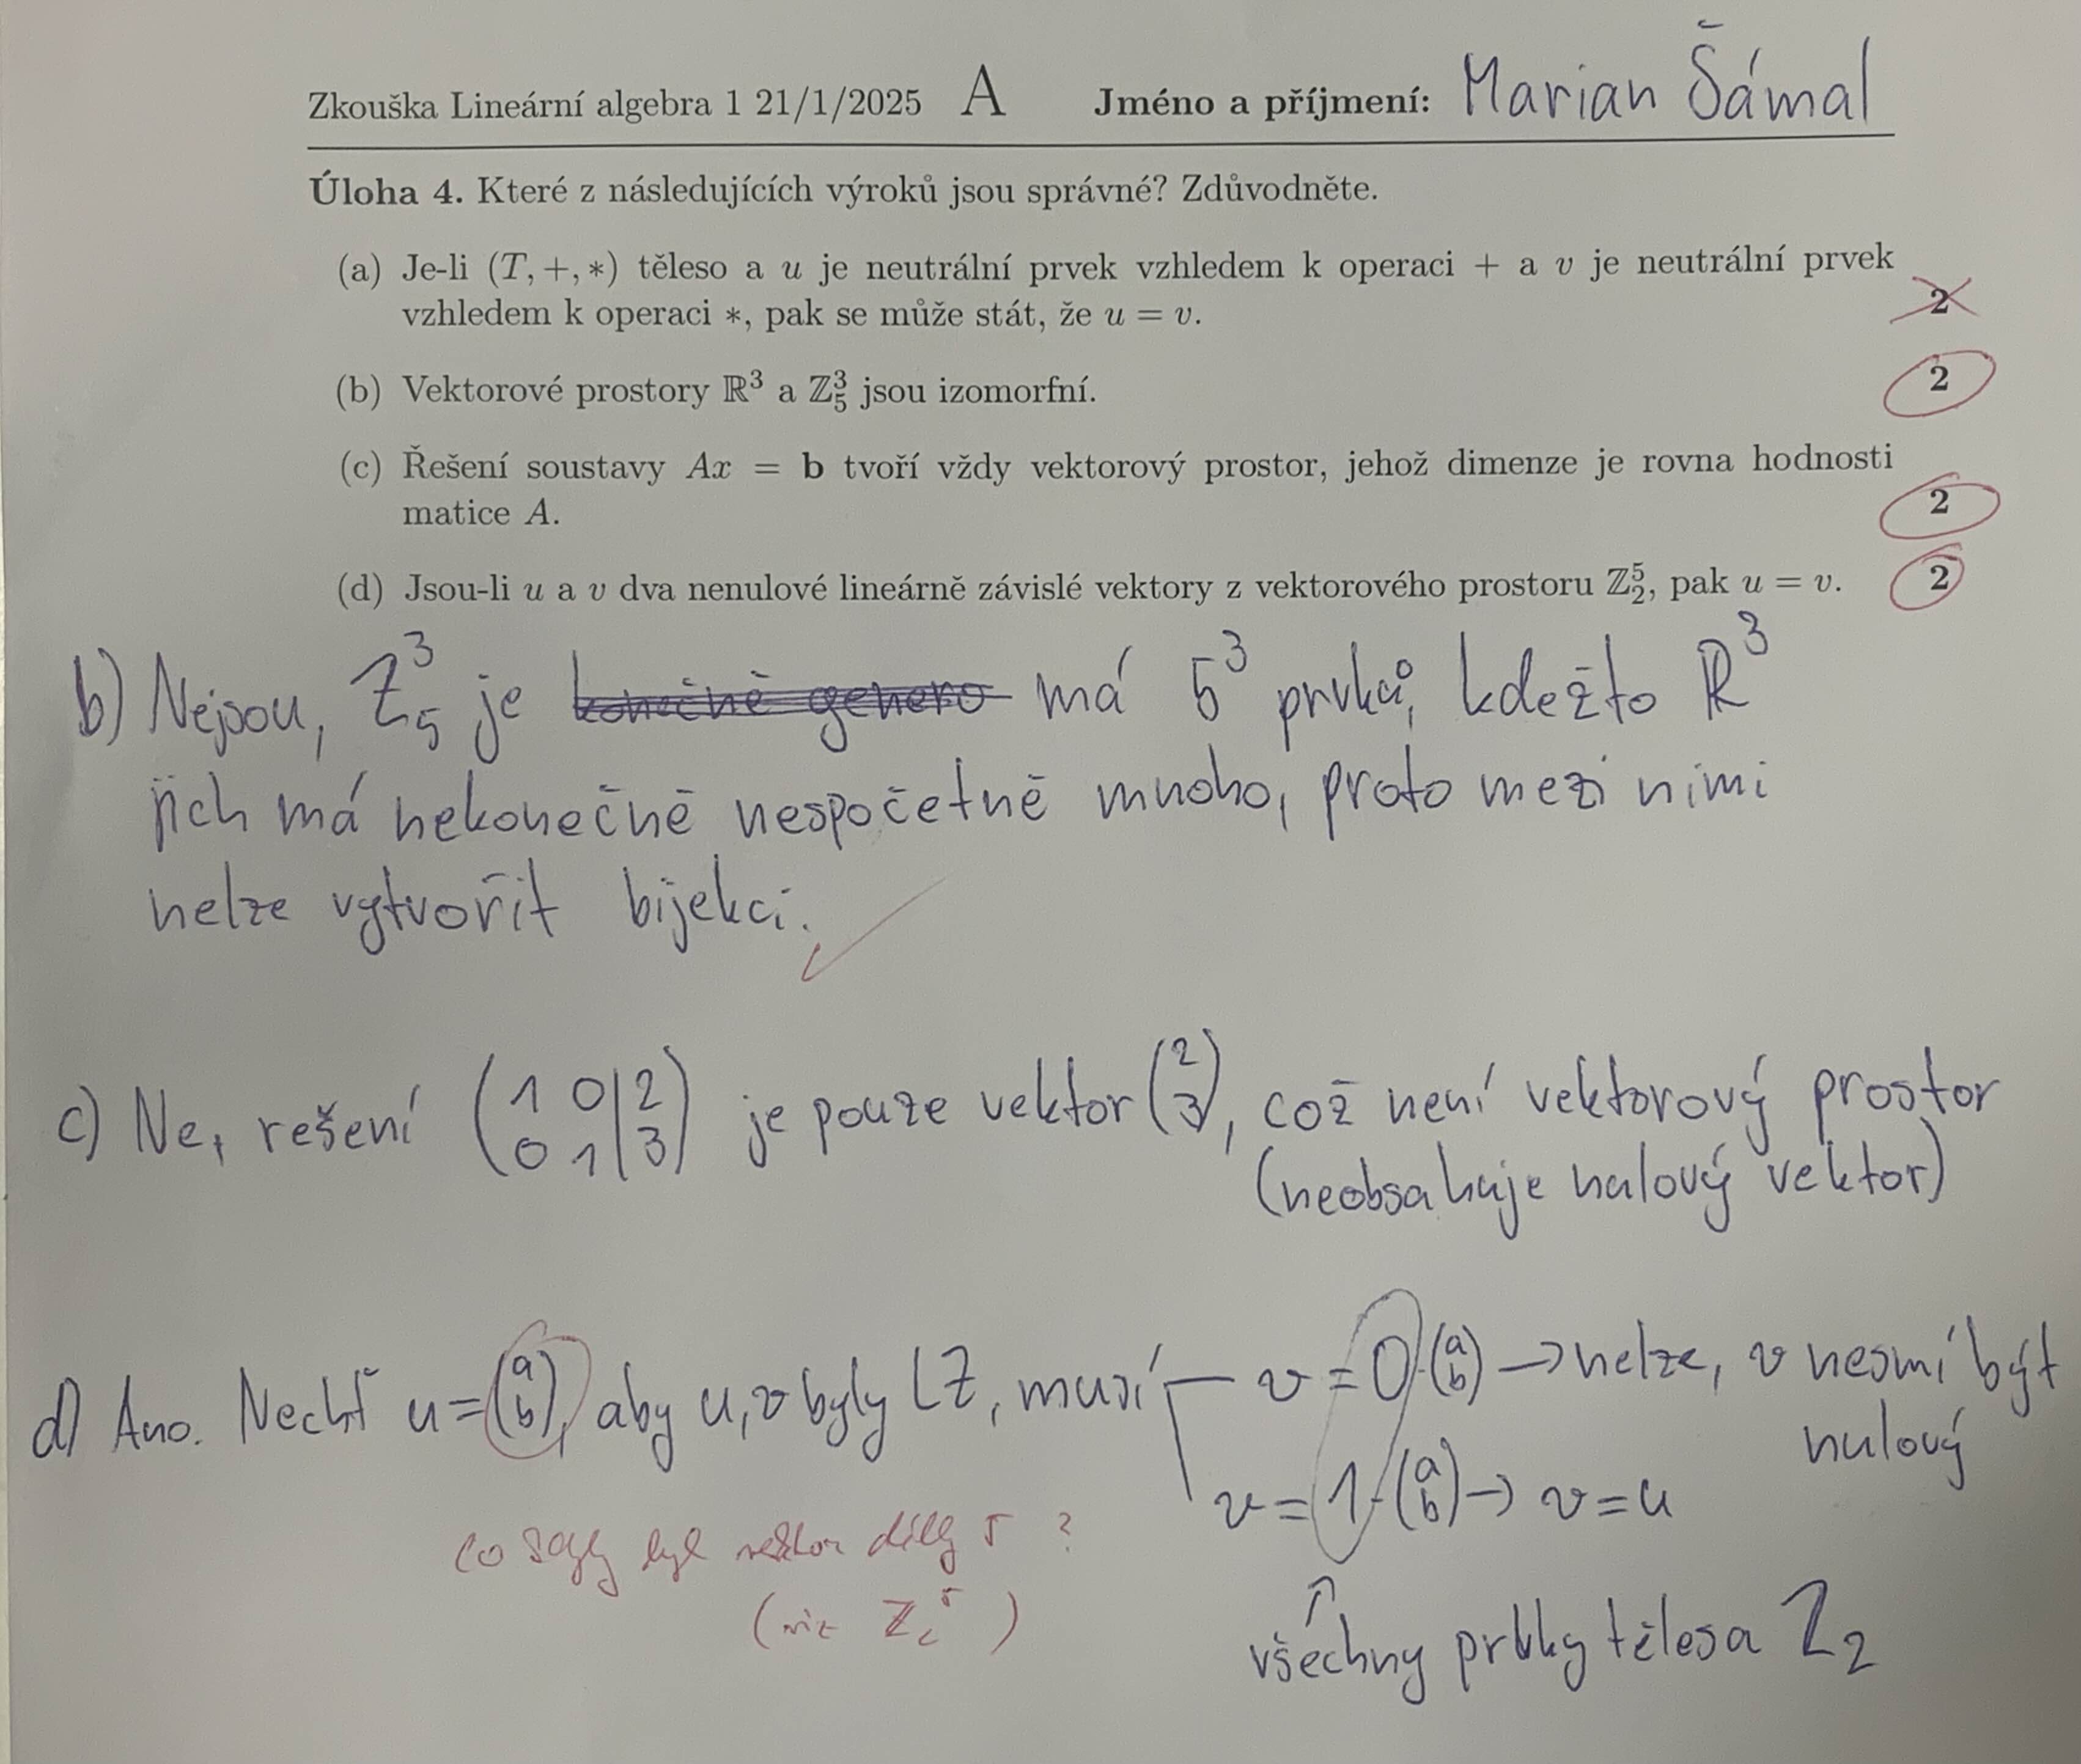 Zkouška Lineární algebra 1 21/1/2025 A Jméno a příjmení: Marian Šámal
Úloha 4. Které z následujících výroků jsou správné? Zdůvodněte.
(a) Je-li (T, +, *) těleso a u je neutrální prvek vzhledem k operaci + a v je neutrální prvek
vzhledem k operaci *, pak se může stát, že u = v. 2
(b) Vektorové prostory ℝ³ a ℤ₅³ jsou izomorfní. 2
(c) Řešení soustavy Ax = b tvoří vždy vektorový prostor, jehož dimenze je rovna hodnosti
matice A. 2
(d) Jsou-li u a v dva nenulové lineárně závislé vektory z vektorového prostoru ℤ₂⁵, pak u = v. 2
b) Nejsou, ℤ₅³ je konečně genero má 5³ prvků, kdežto ℝ³
jich má nekonečně nespočetně mnoho, proto mezi nimi
nelze vytvořit bijekci.
c) Ne, rešení (1 0|2 0 1|3) je pouze vektor (2 3), což není vektorový prostor
(neobsahuje nulový vektor)
d) Ano. Nechť u=(a b), aby u,v byly LZ, musí v = 0·(a b) → nelze, v nesmí být
nulový
v = 1·(a b) → v = u
co kdyby byl vektor délky 5 ?
(viz ℤ₂⁵)
↑
všechny prvky tělesa ℤ₂